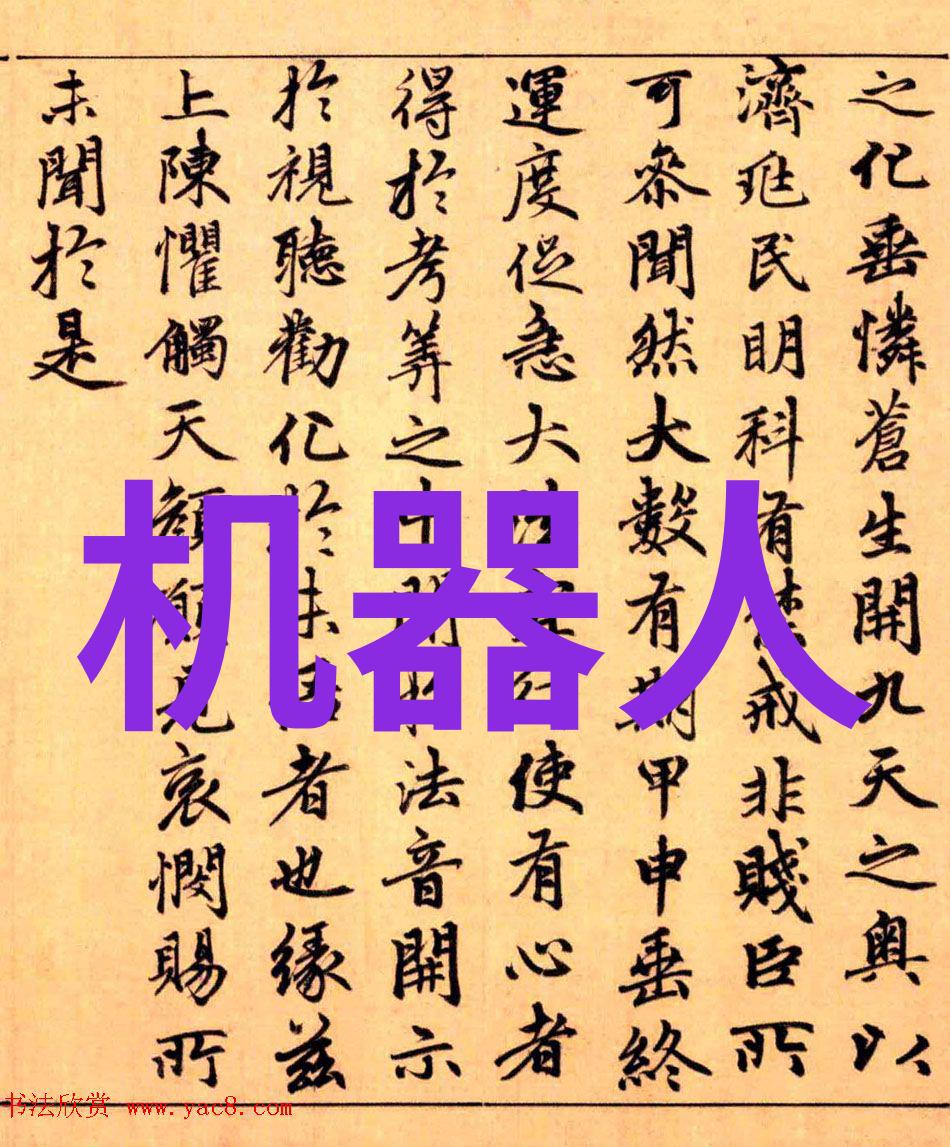 之化垂憐蒼生開九天之奥以
濟兆民明科有禁戒非賤臣所
可参聞然大數有期甲申垂終
運度促急大使有心者
得於考筭之中開於法音開示
於視聽勸化於未者也緣茲
上陳懼觸天顔願見哀憫賜所
未聞於是
机器人
书法欣赏 www.yac8.com